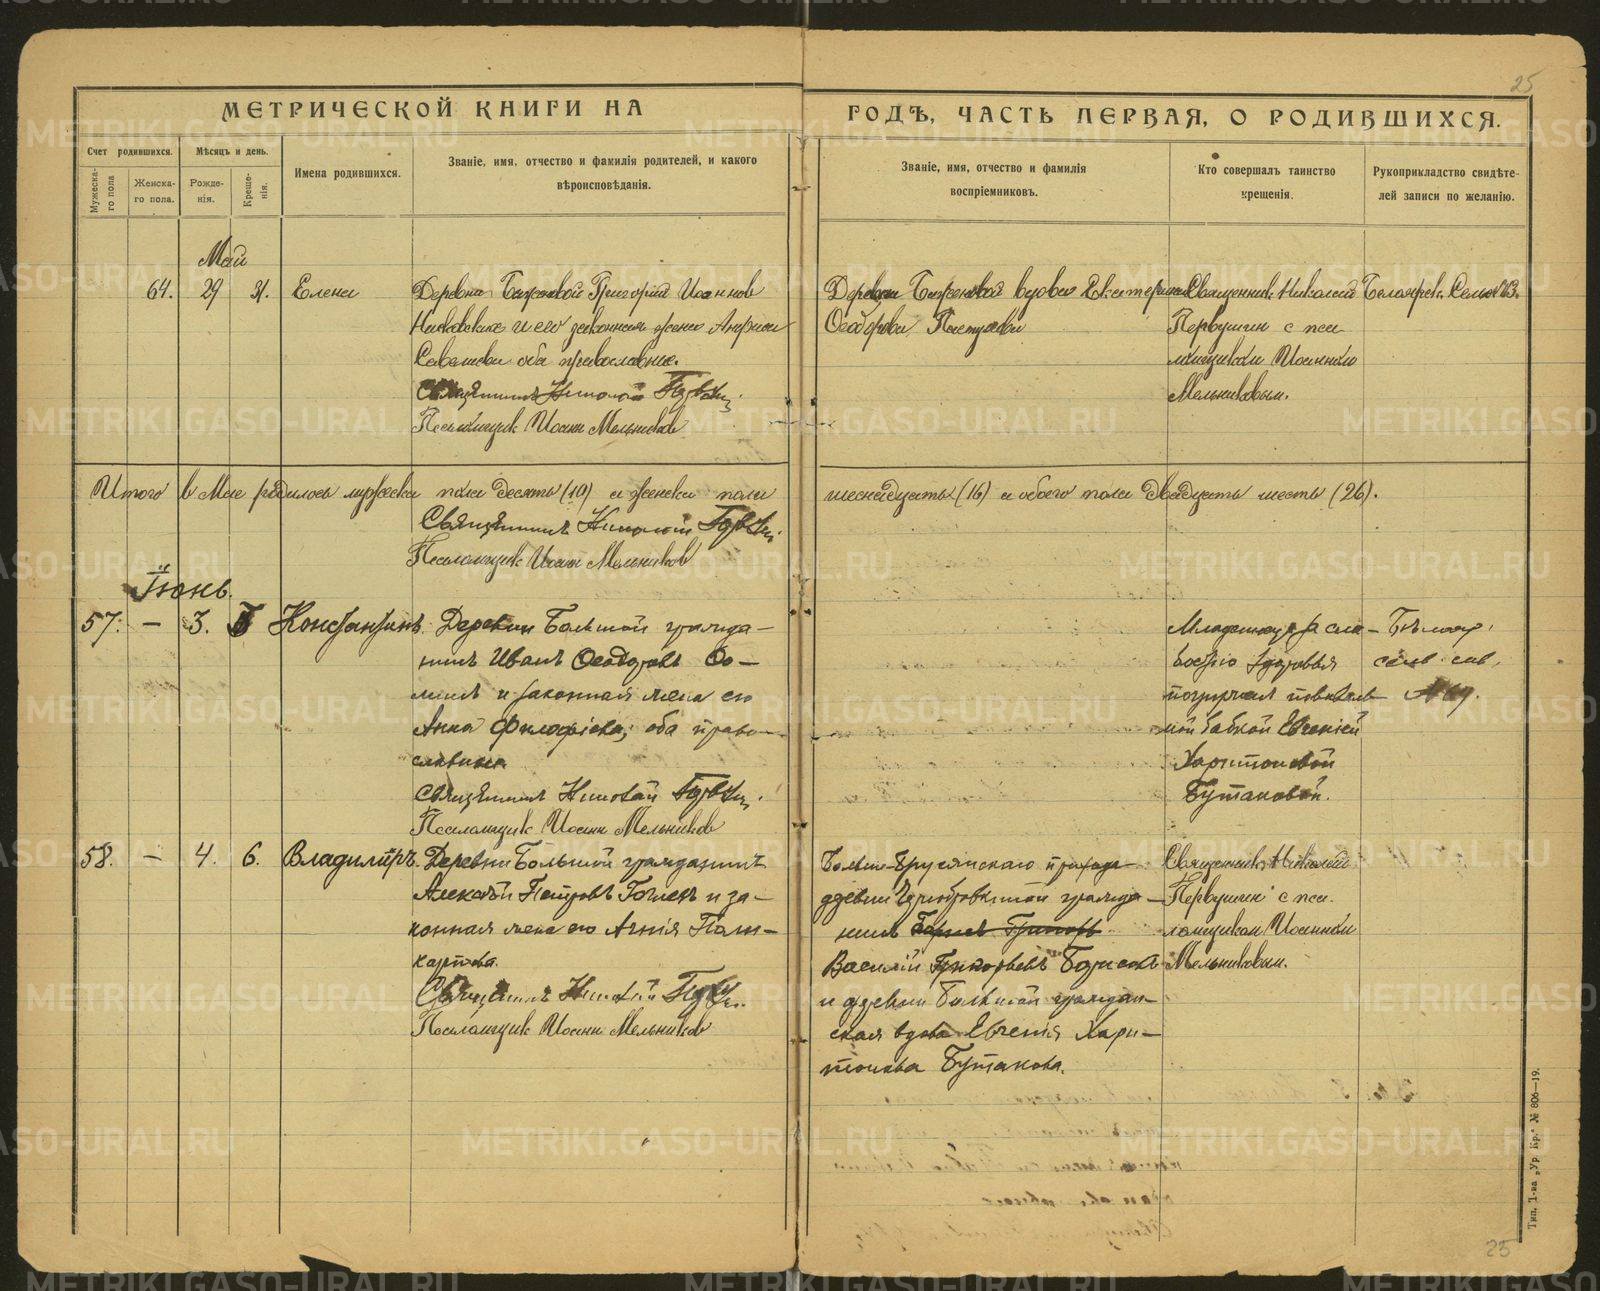 25
МЕТРИЧЕСКОЙ КНИГИ НА
ГОДЪ, ЧАСТЬ ПЕРВАЯ, О РОДИВШИХСЯ.
Счет родившихся.
Мужеска-
го пола
Женска-
го пола.
Мѣсяцъ и день.
Рожде-
нія.
Креще-
нія.
Имена родившихся.
Званіе, имя, отчество и фамилія родителей, и какого
вѣроисповѣданія.
Званіе, имя, отчество и фамилія
воспріемниковъ.
Кто совершалъ таинство
крещенія.
Рукоприкладство свидѣте-
лей записи по желанію.
Май
64. 29 31. Елена
Деревни Григорій Иоаннов
и его законная жена
оба православные.
Священникъ Николай
Псаломщик Иоанн Мельников
Деревни вдова Екатерина
Феодорова
Священник Николай
Первушин с пса
ломщиком Иоанном
Мельниковым.
Итого в Мае родилось мужеска пола десять (10) а женска пола
шеснадцать (16) а обоего пола двадцать шесть (26).
Священникъ Николай
Псаломщик Иоанн Мельников
Іюнь.
57. — 3. Константинъ.
Деревни Большой гражда-
нинъ Иванъ Феодоровъ Фо-
минъ и законная жена его
Анна Филофіева; оба право-
славные
Священникъ Николай
Псаломщик Иоанн Мельников
Младенец за сла-
бостію здоровья
погружен повиваль-
ной бабкой Евгеніей
Харитоновой
Бутаковой.
58. — 4. 6. Владиміръ.
Деревни Большой гражданинъ
Алексѣй Петровъ и за-
конная жена его Агнія Поли-
карпова.
Священникъ Николай
Псаломщик Иоанн Мельников
Больше-Брусянскаго прихода
деревни гражда-
нинъ
Василій Григорьевъ Борисовъ
и деревни Большой граждан-
ская вдова Евгенія Хари-
тонова Бутакова.
Священник Николай
Первушин с пса
ломщиком Иоанном
Мельниковым.
Тип. 1-ва „Ур. Кр.“ № 806—19.
25
METRIKI.GASO-URAL.RU